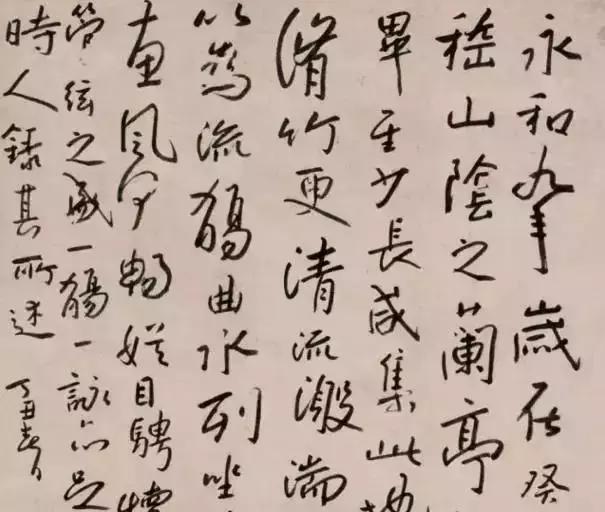 永和九年歲在癸
稽山陰之蘭亭
畢至少長咸集此地
脩竹更清流激湍
以為流觴曲水列坐
惠風和暢娛目騁懷
管弦之盛一觴一詠亦足
時人録其所述 丁丑春日